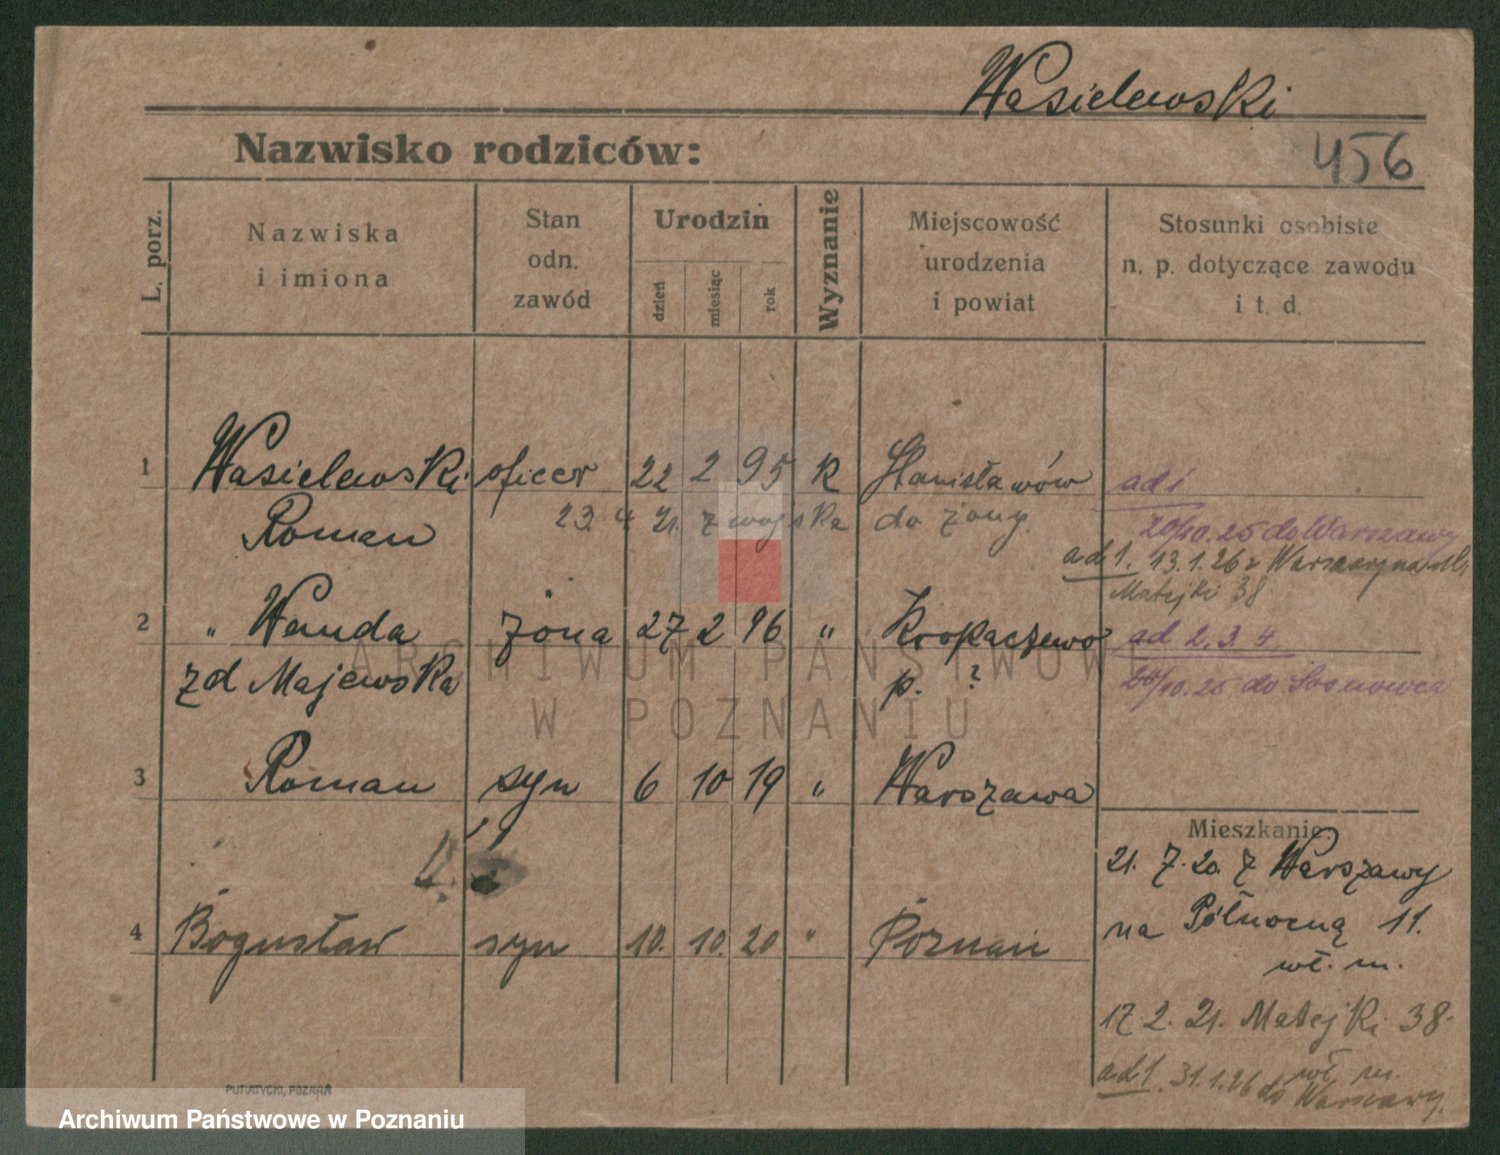 Wasielewski
Nazwisko rodziców:
456
L. porz.
Nazwiska
i imiona
Stan
odn.
zawód
Urodzin
dzień
miesiąc
rok
Wyznanie
Miejscowość
urodzenia
i powiat
Stosunki osobiste
n. p. dotyczące zawodu
i t. d.
1 Wasielewski oficer 22 2 95 K Stanisławów ad 1
Roman 23 4 21. z wojska do żony.
20/10.25 do Warszawy
ad 1. 13.1.26 z Warszawy na
Matejki 38
2 „ Wanda żona 27 2 96 „ Krokaczewo ad 2. 3. 4.
zd Majewska p. ?
20/10.25 do Sosnowca
3 Roman syn 6 10 19 „ Warszawa
4 Bogusław syn 10. 10. 20 „ Poznań
Mieszkanie
21. 7. 20. z Warszawy
na Północną 11.
wł. m.
17 2. 21. Matejki 38.
wł. m.
ad 1. 31.1.26 do Warszawy.
PUTIATYCKI, POZNAŃ
ARCHIWUM PAŃSTWOWE
W POZNANIU
Archiwum Państwowe w Poznaniu